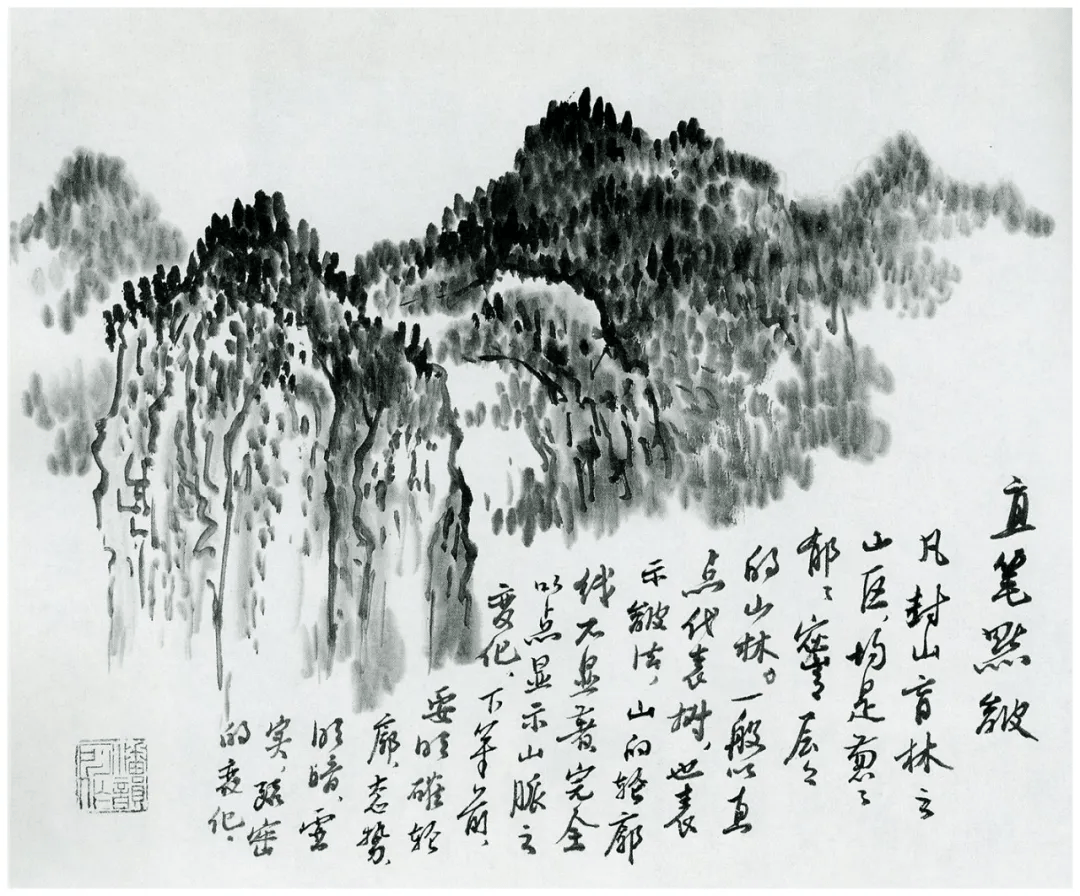 直笔点皴
凡封山育林之
山区，均是葱々
郁々，密密层々
的山林。一般以直
点代表树，也表
示皴法，山的轮廓
线不显著，完全
以点显示山脉之
变化，下笔前，
要明确轮
廓，态势，
明暗，虚
实，疏密
的变化，